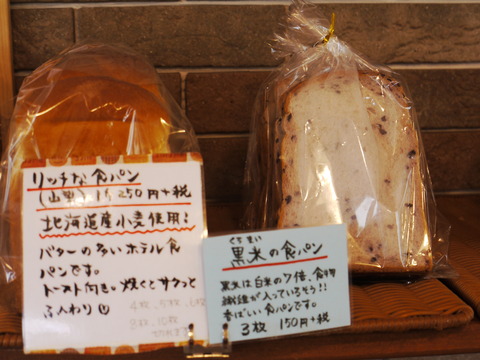 リッチな食パン
(山型) 1斤 250円+税
北海道産小麦使用!
バターの多いホテル食
パンです。
トースト向き。焼くとサクッと
ふんわり
4枚、5枚、6枚
8枚、10枚
くろ まい
黒米の食パン
黒米は白米の7倍、食物
繊維が入っているそう!!
香ばしい食パンです。
3枚 150円+税